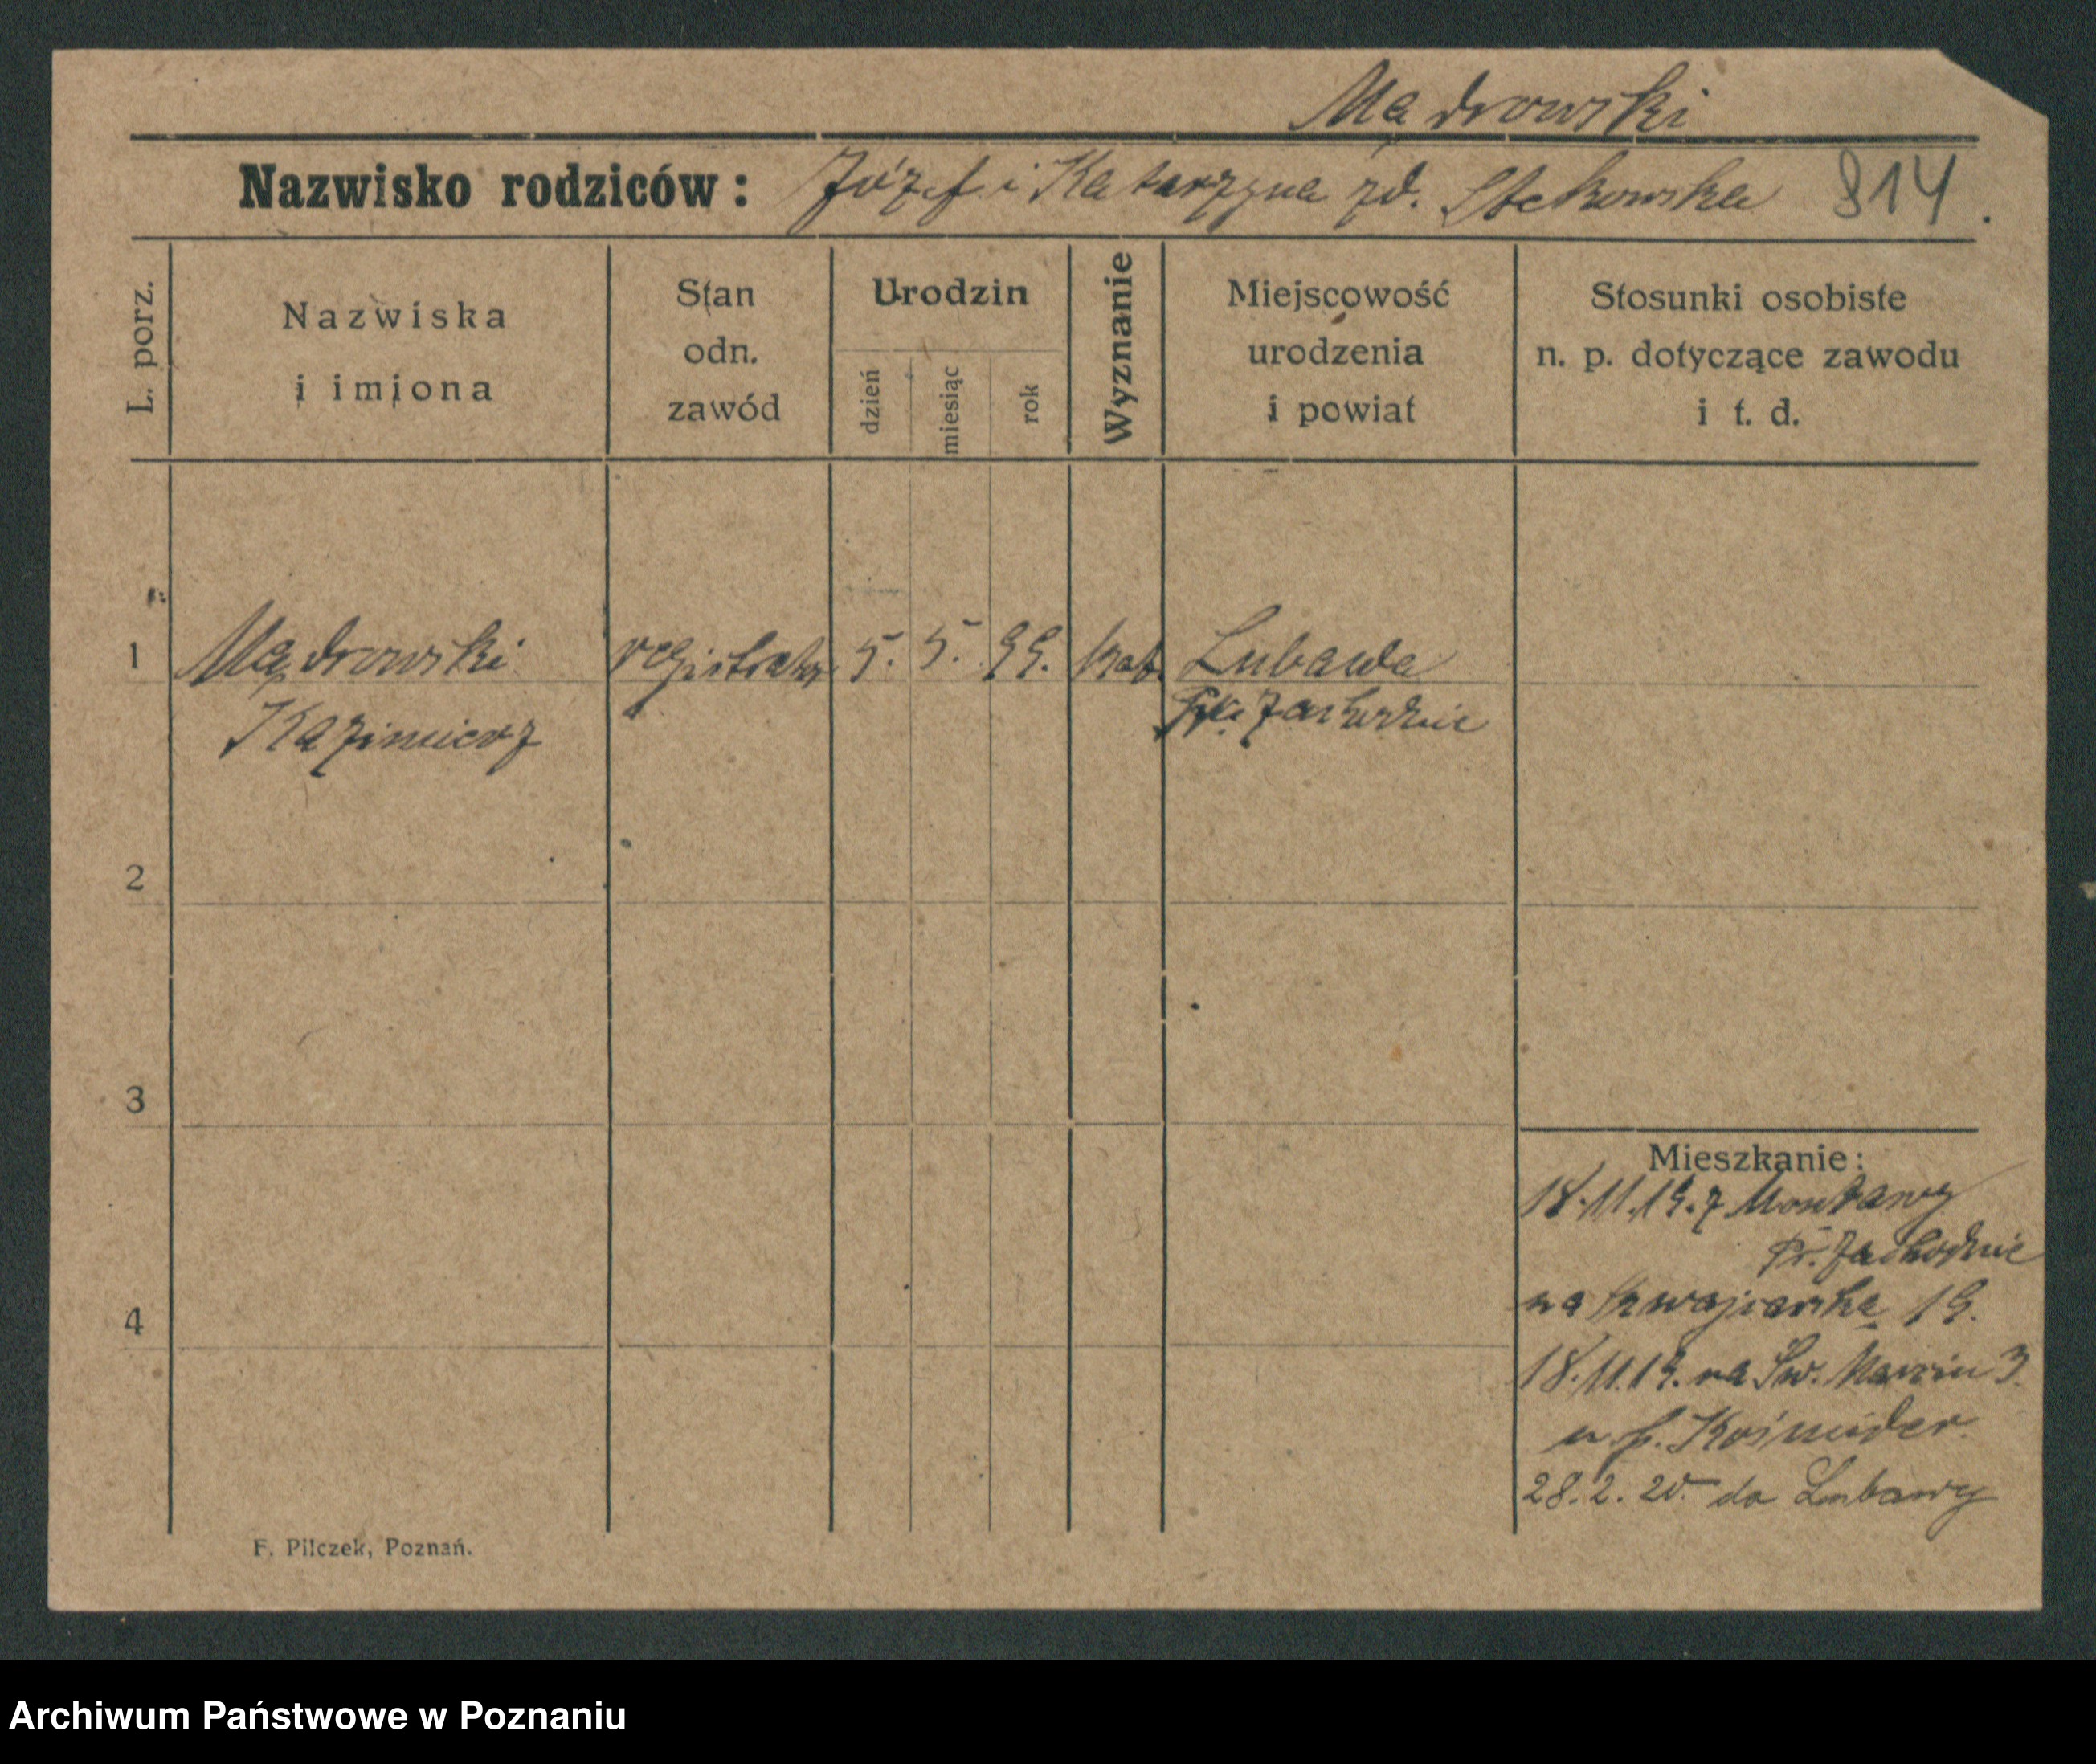 Mądrowski
Nazwisko rodziców: Józef i Katarzyna zd. Stekowska 814.
L. porz.
Nazwiska
i imiona
Stan
odn.
zawód
Urodzin
dzień
miesiąc
rok
Wyznanie
Miejscowość
urodzenia
i powiat
Stosunki osobiste
n. p. dotyczące zawodu
i t. d.
1 Mądrowski registrator 5. 5. 99. kat. Lubawa
Kazimierz Pr. Zachodnie
2
3
4
Mieszkanie:
18.11.19. z Montowy
Pr. Zachodnie
na 19.
18.11.19. na Św. Marcin 3.
u p. Kośmider.
28.2.20. do Lubawy
F. Pilczek, Poznań.
Archiwum Państwowe w Poznaniu